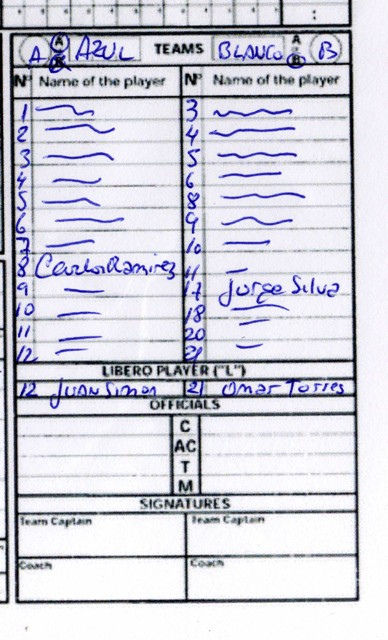 A A B AZUL TEAMS BLANCO A or B B
Nº Name of the player Nº Name of the player
1 3
2 4
3 5
4 6
5 8
6 9
7 10
8 Carlos Ramirez 11
9 17 Jorge Silva
10 18
11 20
12 21
LIBERO PLAYER ("L")
12 Juan Simon 21 Omar Torres
OFFICIALS
C
AC
T
M
SIGNATURES
Team Captain Team Captain
Coach Coach